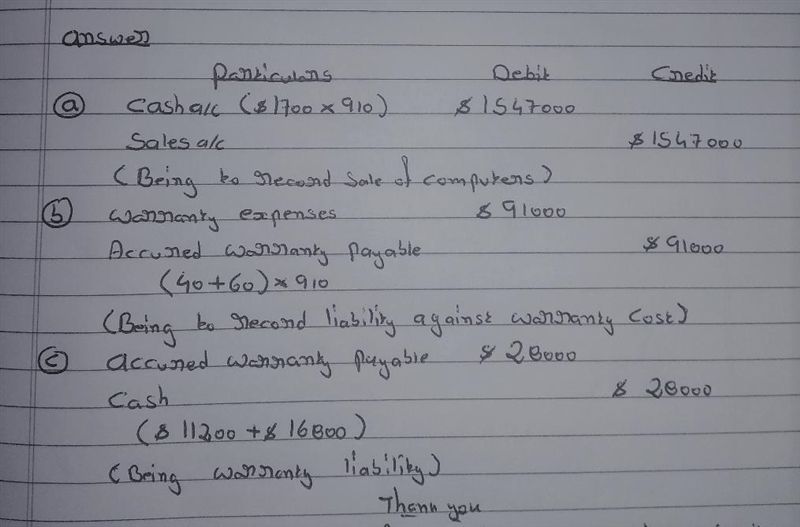 Answer
Particulars Debit Credit
(a) Cash a/c ($1700 × 910) $1547000
Sales a/c $1547000
(Being to record sale of computers)
(b) Warranty expenses $91000
Accrued warranty payable $91000
(40+60) × 910
(Being to record liability against warranty cost)
(c) Accrued warranty payable $28000
Cash $28000
($11200 + $16800)
(Being warranty liability)
Thank you